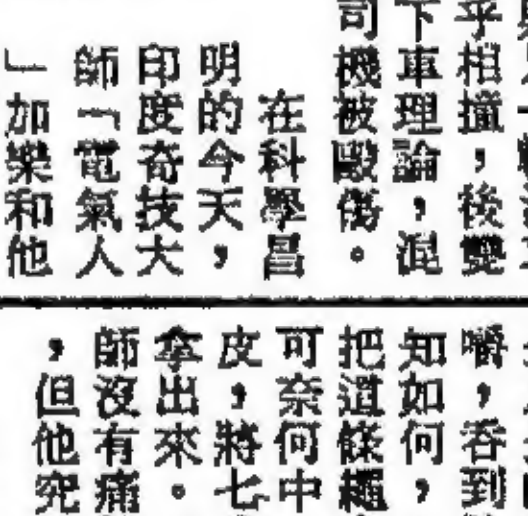 乎相撞，後雙
下車理論，混
司機被毆傷。
在科學昌
明的今天，
印度奇技大
師「電氣人
」加樂和他
嚼，吞到
知如何，
把這條繩
可奈何中
皮，將七
拿出來。
師沒有痛
，但他究